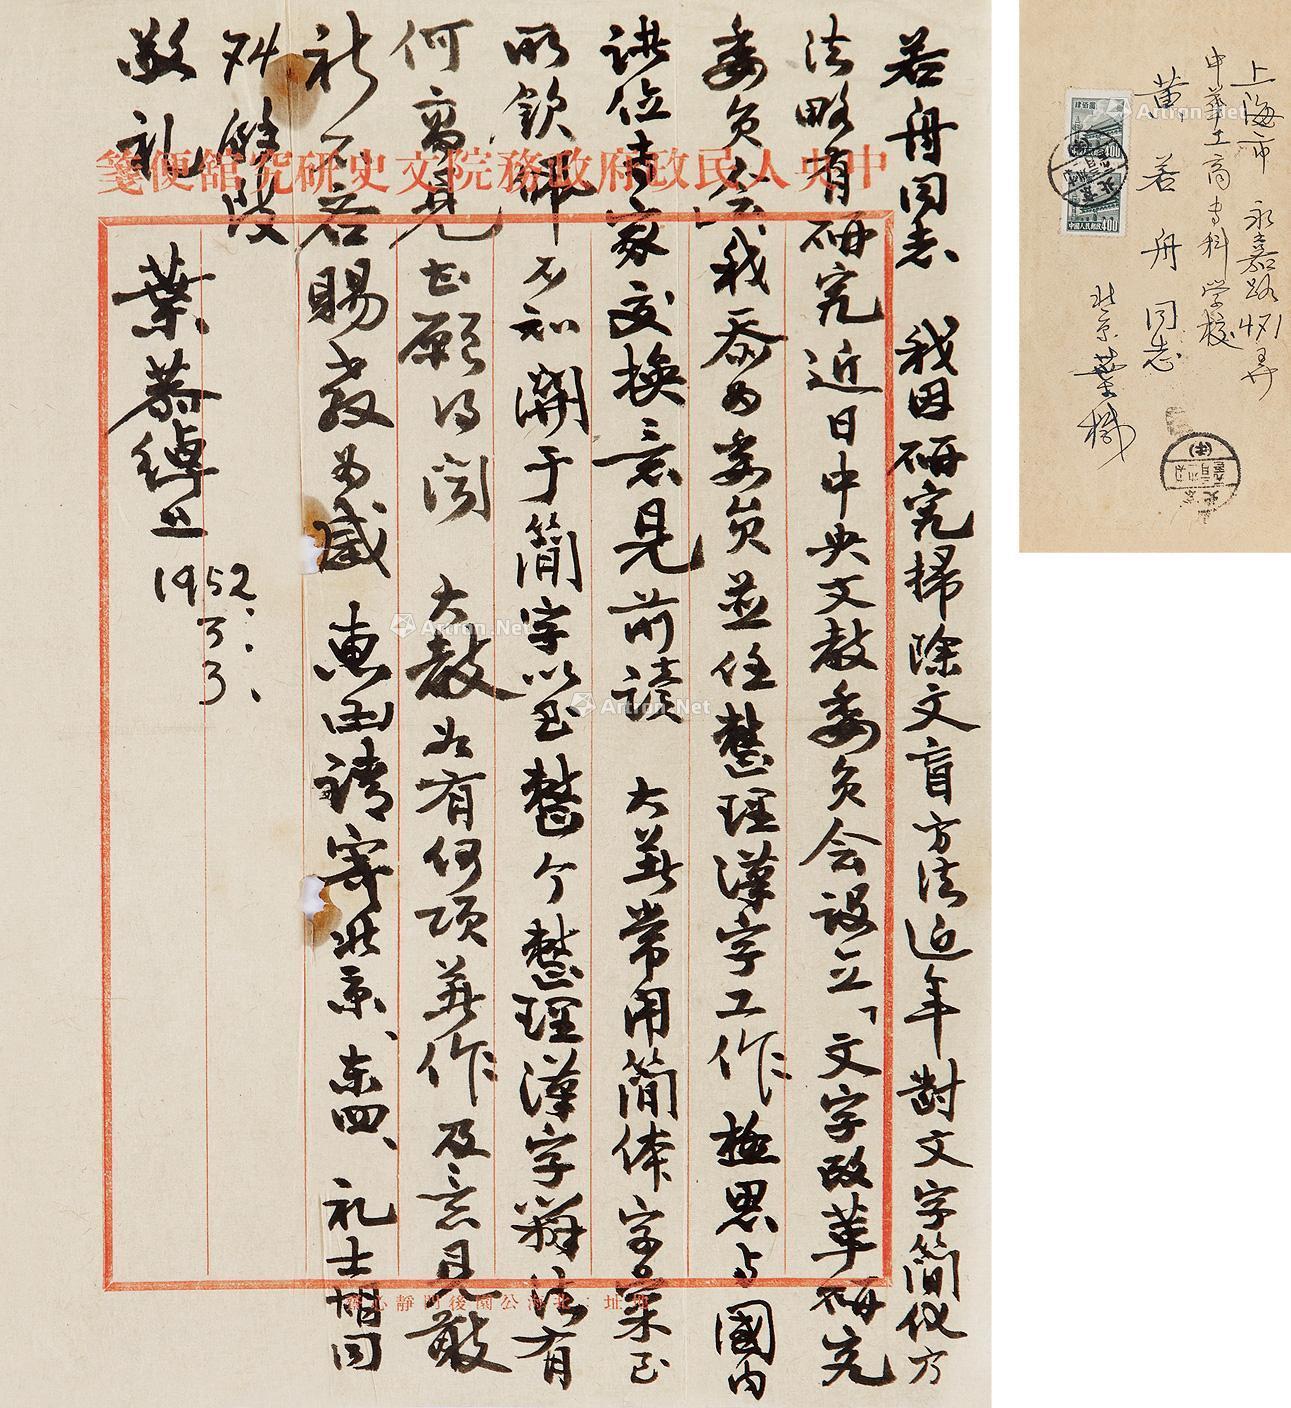 若舟同志　我因研究掃除文盲方法近年對文字簡化方
法略有研究近日中央文教委员会設立「文字改革研究
委员会」我忝为委员並任整理漢字工作極思与國内
諸位专家交换意見前讀　大著常用简体字彙至
所欽佩不知關于简字以至整个整理漢字辦法有
何高見甚願得闻　大教如有何項著作及意見敢
祈不吝賜教为感　惠函請寄北京、东四、礼士胡同
74號
敬礼
葉恭綽上
1952.
3.
3.
中央人民政府政務院文史研究館便箋
館址：北海公園後門靜心齋
上海市　永嘉路
中華工商专科学校
黄若舟同志
北京葉椷
肆佰圓
400
中国人民邮政400
北京
Artron.Net
Artron.Net
Artron.Net